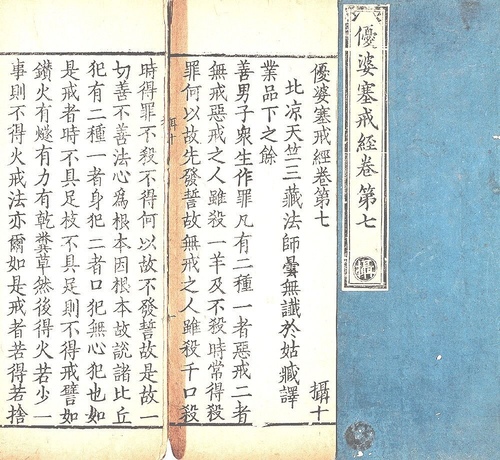 優婆塞戒經卷第七
優婆塞戒經卷第七 攝十
北凉天竺三藏法師曇無讖於姑臧譯
業品下之餘
善男子衆生作罪凡有二種一者惡戒二者
無戒惡戒之人雖殺一羊及不殺時常得殺
罪何以故先發誓故無戒之人雖殺千口殺
時得罪不殺不得何以故不發誓故是故一
切善不善法心爲根本因根本故說諸比丘
犯有二種一者身犯二者口犯無心犯也如
是戒者時不具足枝不具足則不得戒譬如
鑚火有燧有力有乾糞草然後得火若少一
事則不得火戒法亦爾如是戒者若得若捨